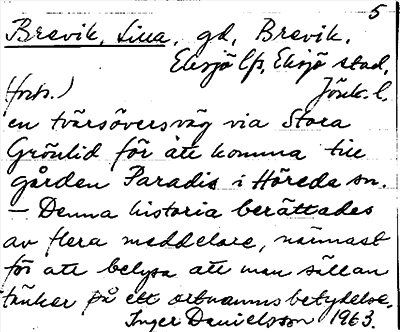 5
Brevik, Lilla, gd, Brevik,
Eksjö lfs, Eksjö stad,
(forts.) Jönk. l.
en tvärsöversväg via Stora
Grönlid för att komma till
gården Paradis i Höreda sn.
— Denna historia berättades
av flera meddelare, närmast
för att belysa att man sällan
tänker på ett ortnamns betydelse.
Inger Danielsson 1963